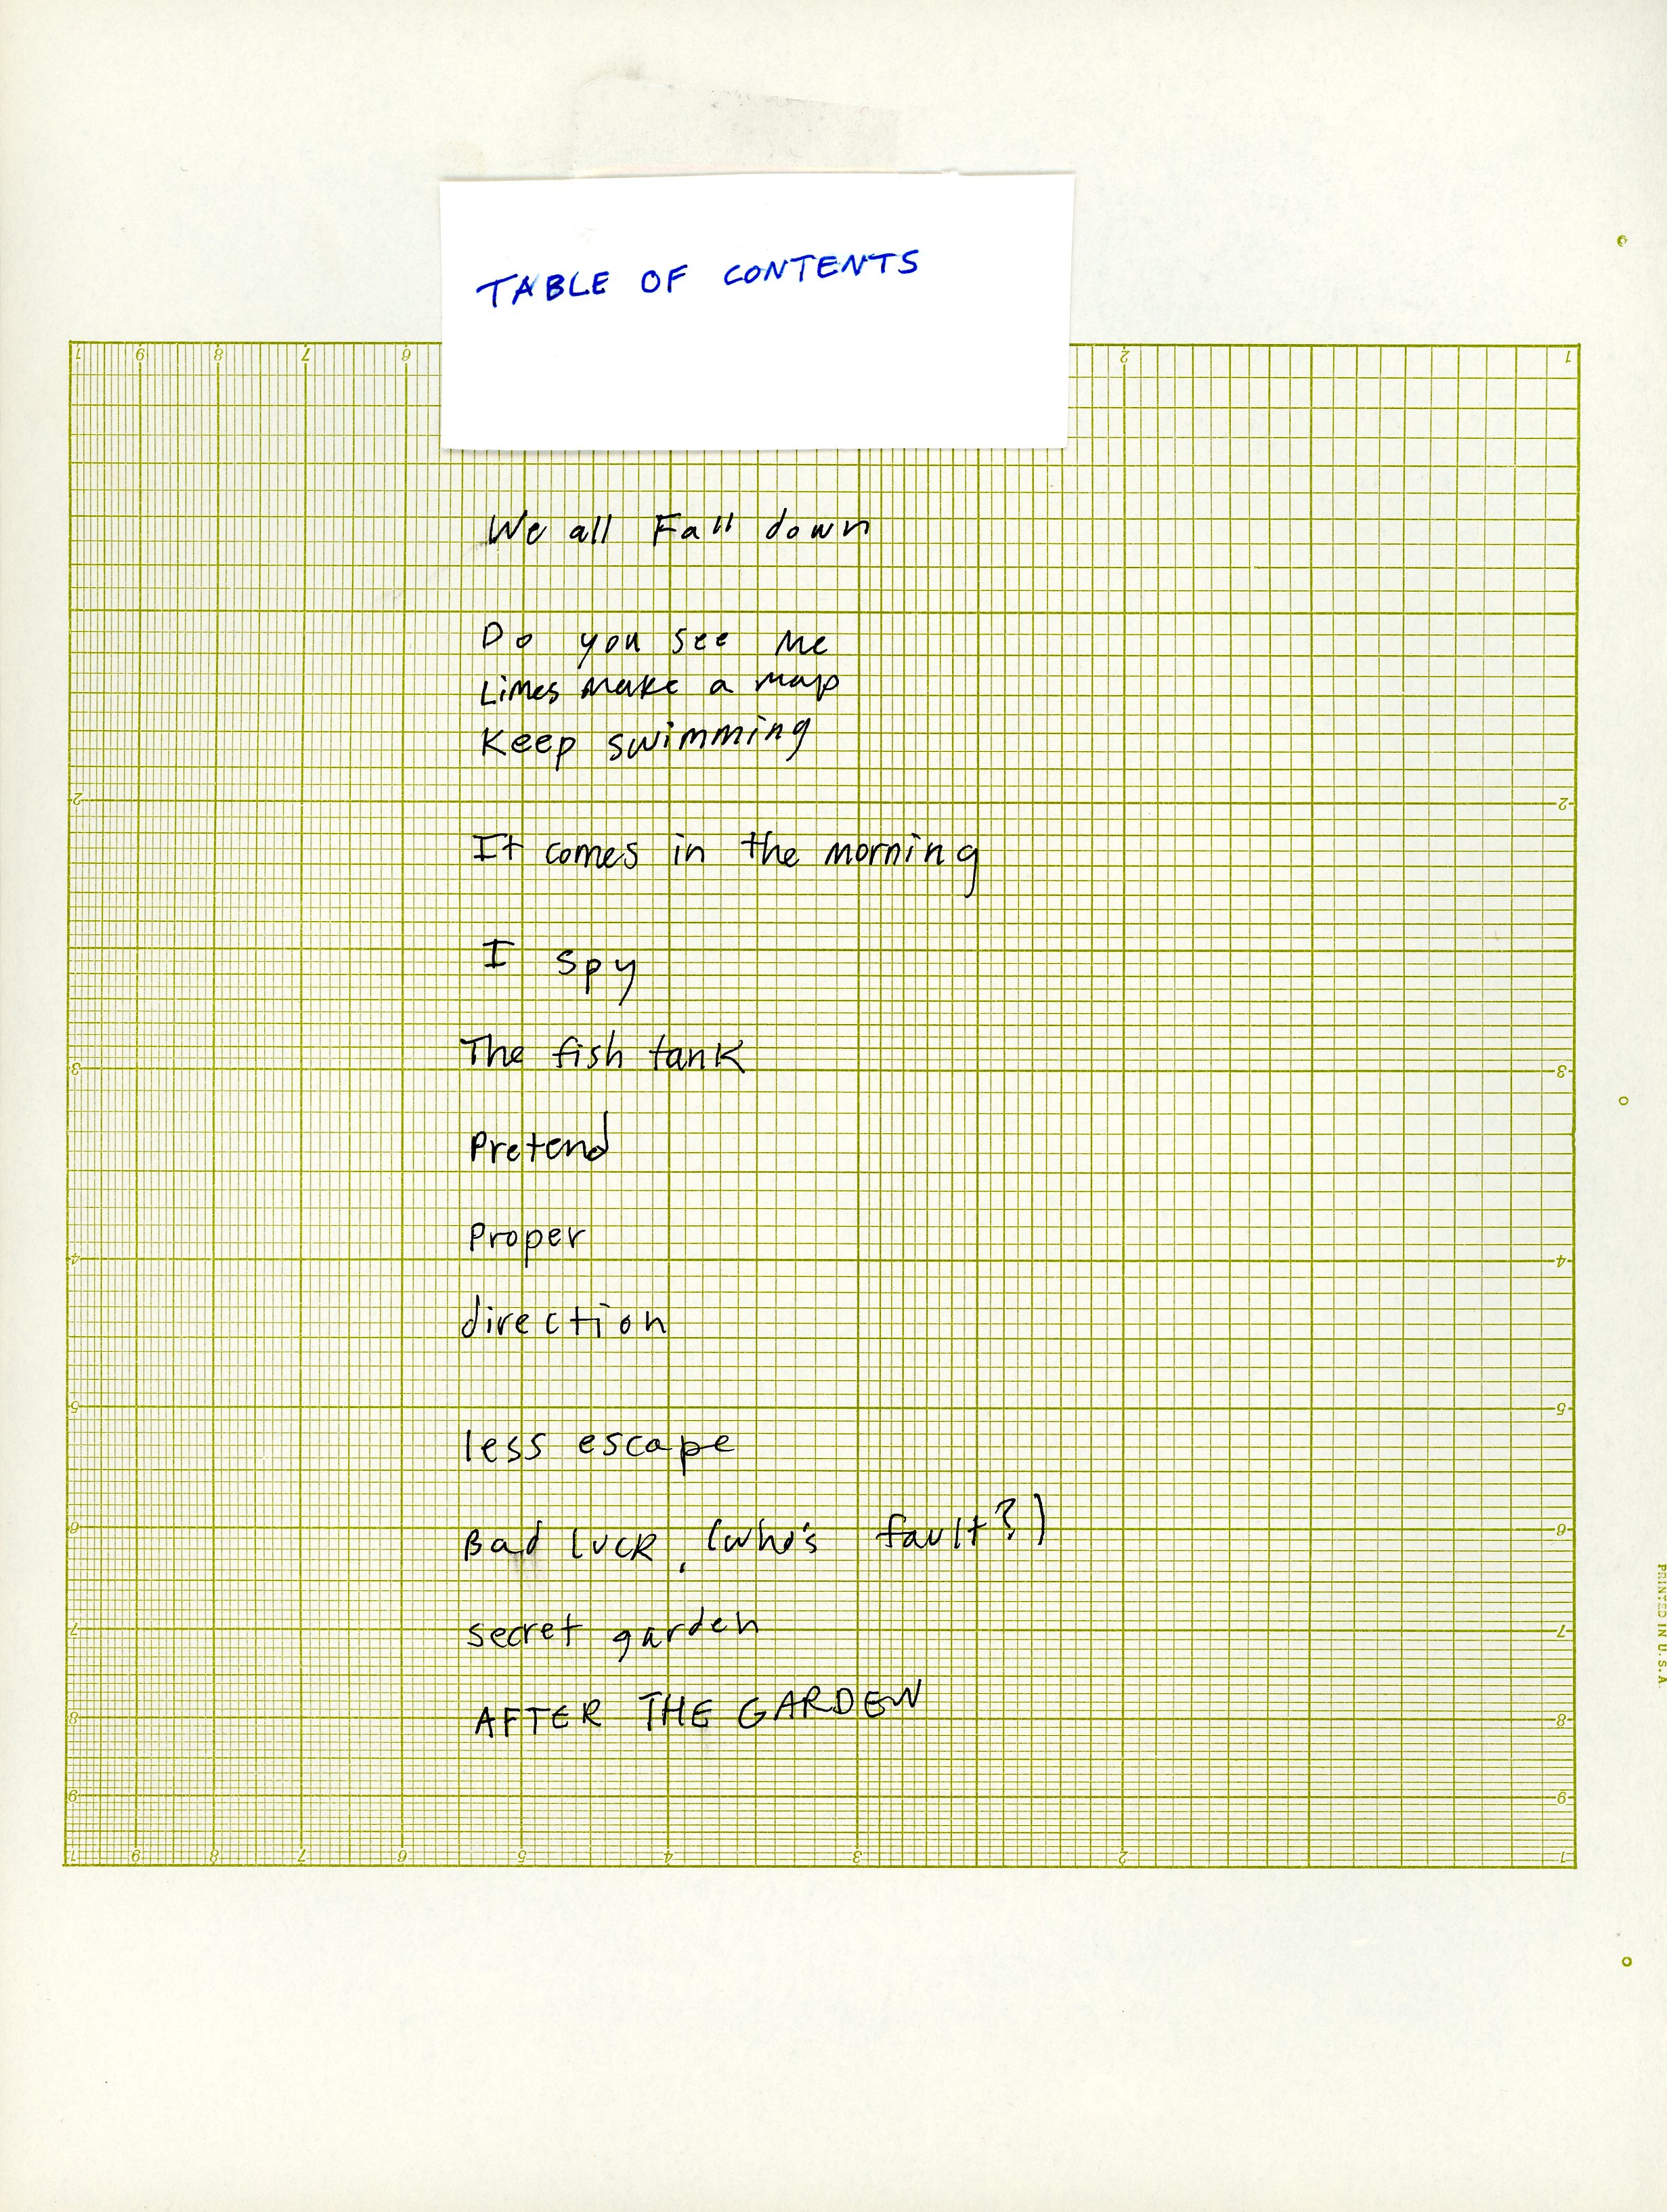 TABLE OF CONTENTS
1 9 8 7 6 2 1
We all Fall down
Do you see me
Limes make a map
Keep swimming
2 2
It comes in the morning
I spy
The fish tank
3 3
Pretend
Proper
4 4
direction
5 5
less escape
Bad luck, (who's fault?)
6 6
secret garden
7 7
AFTER THE GARDEN
8 8
9 9
1 9 8 7 6 5 4 3 2 1
PRINTED IN U.S.A.